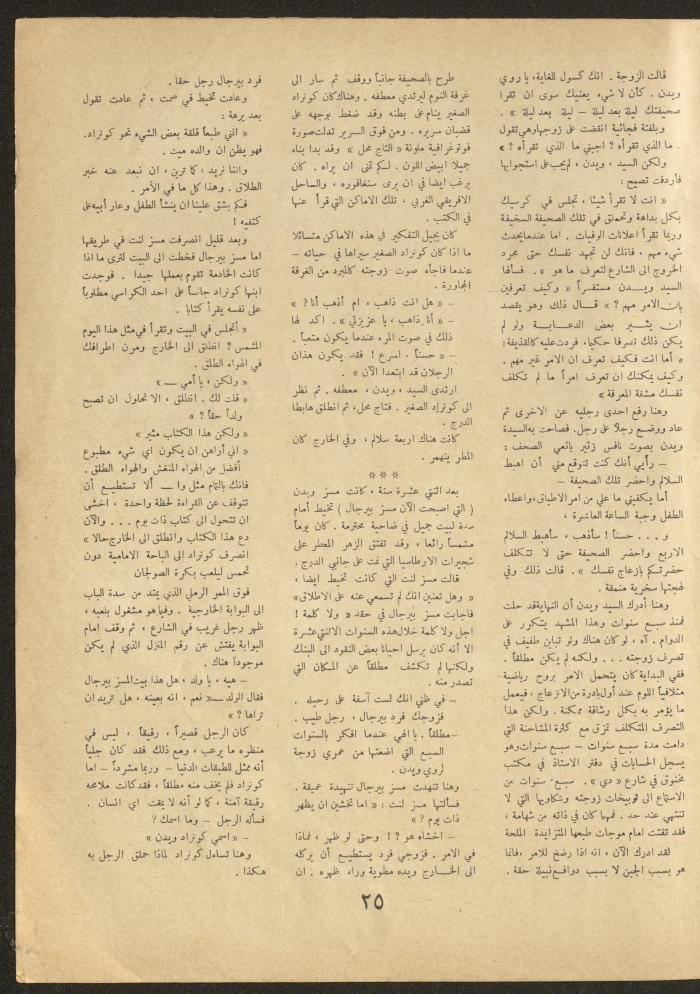 قالت الزوجة . انك كسول للغاية، يا روي
ويدن . كأن لا شيء يعنيك سوى ان تقرا
صحيفتك ليلة بعد ليلة – ليلة بعد ليلة » .
وبلفتة فجائية انقضت على زوجها وهي تقول
. ما الذي تقرأه ؟ اجبني ما الذي تقرأه ؟ »
ولكن السيد ، ويدن ، لم يجب على استجوابها
فأردفت تصيح :
« انت لا تقرأ شيئا ، تجلس في كرسيك
بكل بداهة وتحملق في تلك الصحيفة السخيفة
وربما تقرأ اعلانات الوفيات . اما عندما يحدث
شيء مهم ، فانك لن تجهد نفسك حتى مجرد
الخروج الى الشارع لتعرف ما هو » . فسألها
السيد ويدن مستفسراً « وكيف تعرفين
بان الامر مهم ؟ » قال ذلك وهو يقصد
ان يشير بعض الدعابة ولو لم
يكن ذلك تصرفا حكيما، فردت عليه كالقذيفة:
« أما انت فكيف تعرف ان الامر غير مهم .
وكيف يمكنك ان تعرف امراً ما لم تكلف
نفسك مشقة المعرفة »
وهنا رفع احدى رجليه عن الاخرى ثم
عاد ووضع رجلاً على رجل. فصاحت به السيدة
ويدن بصوت نافس زئير بائعي الصحف :
– رأيي أنك كنت تتوقع مني أن اهبط
السلالم واحضر تلك الصحيفة –
أما يكفيني ما علي من امر الاطباق، واعطاء
الطفل وجبة الساعة العاشرة ،
و . . . حسنا ! سأذهب ، سأهبط السلالم
الاربع واحضر الصحيفة حتى لا تتكلف
حضرتكم بازعاج نفسك » . قالت ذلك وفي
لهجتها سخرية منمقة .
وهنا أدرك السيد ويدن أن النهاية قد حلت
فمنذ سبع سنوات وهذا المشهد يتكرر على
الدوام . آه ، لو كان هناك ولو تباين طفيف في
تصرف زوجته ... ولكنه لم يكن مطلقاً .
ففي البداية كان يتحمل الامر بروح رياضية
متلافيا اللوم عند أول بادرة من الانزعاج ، فيعمل
ما يؤمر به بكل رشاقة ممكنة . ولكن هذا
التصرف المتكلف تمزق مع كثرة المشاحنة التي
دامت مدة سبع سنوات – سبع سنوات وهو
يسجل الحسابات في دفتر الاستاذ في مكتب
مخنوق في شارع « دي » . سبع سنوات من
الاستماع الى توبيخات زوجته وشكاويها التي لا
تنتهي عند حد . فمهما كان في ذاته من شهامة ،
فقد تفتتت امام موجات طبعها المتزايدة الملحة
لقد ادرك الآن ، انه اذا رضخ للامر ، فانما
هو بسبب الجبن لا بسبب دوافع نبيلة حقة .
طرح بالصحيفة جانباً ووقف ثم سار الى
غرفة النوم ليرتدي معطفه . وهناك كان كونراد
الصغير ينام على بطنه وقد ضغط بوجهه على
قضبان سريره . ومن فوق السرير تدلت صورة
فوتوغرافية ملونة « التاج محل » وقد بدا بناه
جميلا ابيض اللون . لكم تمنى ان يراه . كان
يرغب ايضا في ان يرى سنغافوره ، والساحل
الافريقي الغربي ، تلك الاماكن التي قرأ عنها
في الكتب .
كان يجيل التفكير في هذه الاماكن متسائلا
ما اذا كان كونراد الصغير سيراها في حياته –
عندما فاجأه صوت زوجته كالمبرد من الغرفة
المجاورة .
– « هل انت ذاهب ، ام أذهب أنا ؟ »
– « أنا ذاهب ، يا عزيزتي » . اكد لها
ذلك في صوت المرء عندما يكون متعباً .
– « حسناً ، اسرع ! فقد يكون هذان
الرجلان قد ابتعدا الآن » .
ارتدى السيد ، ويدن ، معطفه . ثم نظر
الى كونراد الصغير . فتاج محل، ثم انطلق هابطا
الدرج .
كانت هناك اربعة سلالم ، وفي الخارج كان
المطار ينهمر .
* * *
بعد اثنتي عشرة سنة ، كانت مسز ويدن
( التي اصبحت الآن مسز بيرجال ) تخيط أمام
سدة لبيت جميل في ضاحية محترمة . كان يوماً
مشمساً رائعاً ، وقد تفتق الزهر المعطر على
شجيرات الارطاسيا التي نمت على جانبي الدرج .
قالت مسز لنت التي كانت تخيط ايضا ،
« وهل تعنين انك لم تسمعي عنه على الاطلاق»
فاجابت مسز بيرجال في حقد « ولا كلمة !
اجل ولا كلمة خلال هذه السنوات الاثنتي عشرة
الا أنه كان يرسل احيانا بعض النقود الى البنك
ولكنها لم تكشف مطلقاً عن المكان التي
تصدر منه .
– في ظني انك لست آسفة على رحيله .
فزوجك فرد بيرجال ، رجل طيب .
–مطلقا . يا الهي عندما افكر بالسنوات
السبع التي اضعتها من عمري زوجة
لروي ويدن .
وهنا تنهدت مسز بيرجال تنهيدة عميقة .
فسألتها مسز لنت : « اما تخشين ان يظهر
ذات يوم ؟ »
– اخشاه هو ؟ ! وحتى لو ظهر ، فماذا
في الامر . فزوجي فرد يستطيع أن يركله
الى الخارج ويده مطوية وراء ظهره . ان
فرد بيرجال رجل حقا .
وعادت تخيط في صمت ، ثم عادت تقول
بعد برهة :
« اني طبعاً قلقة بعض الشيء نحو كونراد.
فهو يظن ان والده ميت .
واننا نريد ، كما ترين ، ان نبعد عنه خبر
الطلاق . وهذا كل ما في الأمر .
فكم يشق علينا ان ينشأ الطفل وعار أبيه على
كتفيه !
وبعد قليل انصرفت مسز لنت في طريقها
اما مسز بيرجال فخطت الى البيت لترى ما اذا
كانت الخادمة تقوم بعملها جيدا . فوجدت
ابنها كونراد جالساً على احد الكراسي مطلوباً
على نفسه يقرأ كتابا .
« أتجلس في البيت وتقرأ في مثل هذا اليوم
المشمس ؟ انطلق الى الخارج ومرن اطرافك
في الهواء الطلق .
« ولكن ، يا أمي — »
« قلت لك . انطلق ، الا تحاول ان تصبح
ولداً حقاً ؟ »
« ولكن هذا الكتاب مثير »
« اني أراهن ان يكون اي شيء مطبوع
أفضل من الهواء المنعش والهواء الطلق .
فانك بالتمام مثل وا — ألا تستطيع أن
تتوقف عن القراءة لحظة واحدة ، اخشى
ان تتحول الى كتاب ذات يوم . . . والآن
دع هذا الكتاب وانطلق الى الخارج حالا »
انصرف كونراد الى الباحة الامامية دون
تحمس ليلعب بكرة الصولجان
فوق الممر الرملي الذي يمتد من سدة الباب
الى البوابة الخارجية . وفيما هو مشغول بلعبه ،
ظهر رجل غريب في الشارع ، ثم وقف امام
البوابة يفتش عن رقم المنزل الذي لم يكن
موجوداً هناك .
– هيه ، يا ولد ، هل هذا بيت المسز بيرجال
فقال الولد –« نعم ، انه بعينه ، هل تريد ان
تراها ؟ »
كان الرجل قصيراً ، رقيقاً ، ليس في
منظره ما يرعب ، ومع ذلك فقد كان جلياً
أنه ممثل للطبقات الدنيا – وربما مشرداً – اما
كونراد فلم يخف منه مطلقاً ، فقد كانت ملامحه
رقيقة آمنة ، كما لو أنه لا يمقت اي انسان .
فسأله الرجل – وما اسمك ؟
– « اسمي كونراد ويدن »
وهنا تساءل كونراد لماذا حملق الرجل به
هكذا .
٢٥